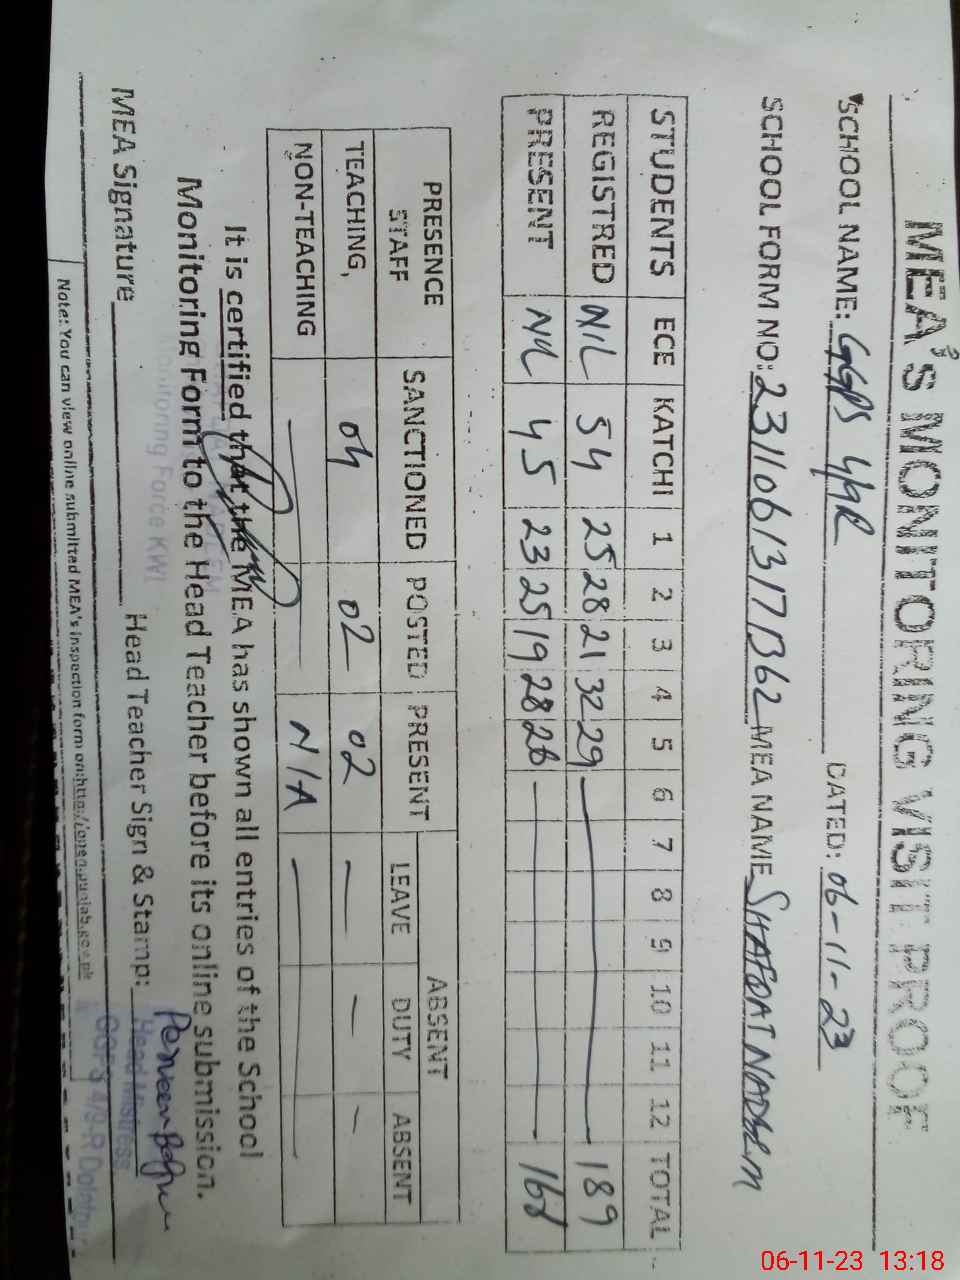 MEA'S MONITORING VISIT PROOF
SCHOOL NAME: GGPS 4/9R DATED: 06-11-23
SCHOOL FORM NO: MEA NAME SHAFQAT NADEEM
STUDENTS ECE KATCHI 1 2 3 4 5 6 7 8 9 10 11 12 TOTAL
REGISTRED NIL 54 25 28 21 32 29 189
PRESENT NIL 45 23 25 19 28 28 168
PRESENCE STAFF SANCTIONED POSTED PRESENT ABSENT
LEAVE DUTY ABSENT
TEACHING, 04 02 02 — — —
NON-TEACHING — N/A —
It is certified that the MEA has shown all entries of the School
Monitoring Form to the Head Teacher before its online submission.
Monitoring Force KWL
MEA Signature Head Teacher Sign & Stamp:
Head Mistress
GGPS 4/9-R
Note: You can view online submitted MEA's inspection form on:http://open.punjab.gov.pk
06-11-23 13:18